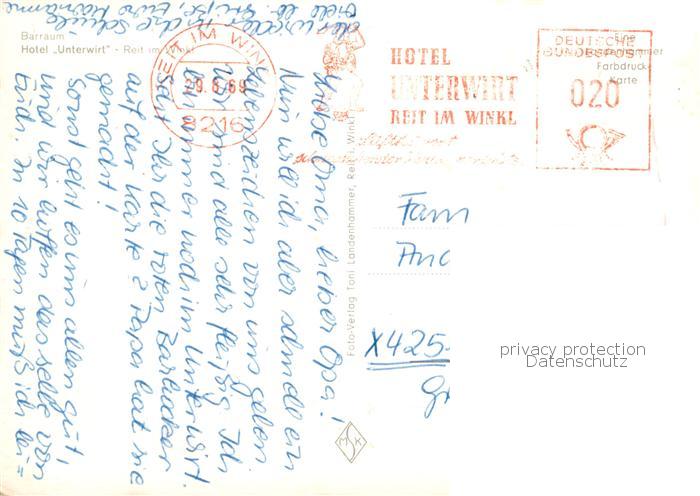 Barraum
Hotel „Unterwirt" - Reit im Winkl
REIT IM WINKL
29.8.69
8216
HOTEL
UNTERWIRT
REIT IM WINKL
DEUTSCHE
BUNDESPOST
020
Eine
Landenhammer
Farbdruck
Karte
Foto-Verlag Toni Landenhammer, Reit i. Winkl
Liebe Oma, lieber Opa!
Nun will ich aber schnell ein
Lebenszeichen von uns geben
Wir sind alle sehr fleißig. Ich
bin immer noch im Unterwirt.
Seht Ihr die roten Barhocker
auf der Karte? Papa hat sie
gemacht!
sonst geht es uns allen gut,
und wir hoffen dasselbe von
Euch. In 10 Tagen muß ich lei=
der wieder in die Schule
Viele
Fam
And
X425-
MSK
privacy protection
Datenschutz